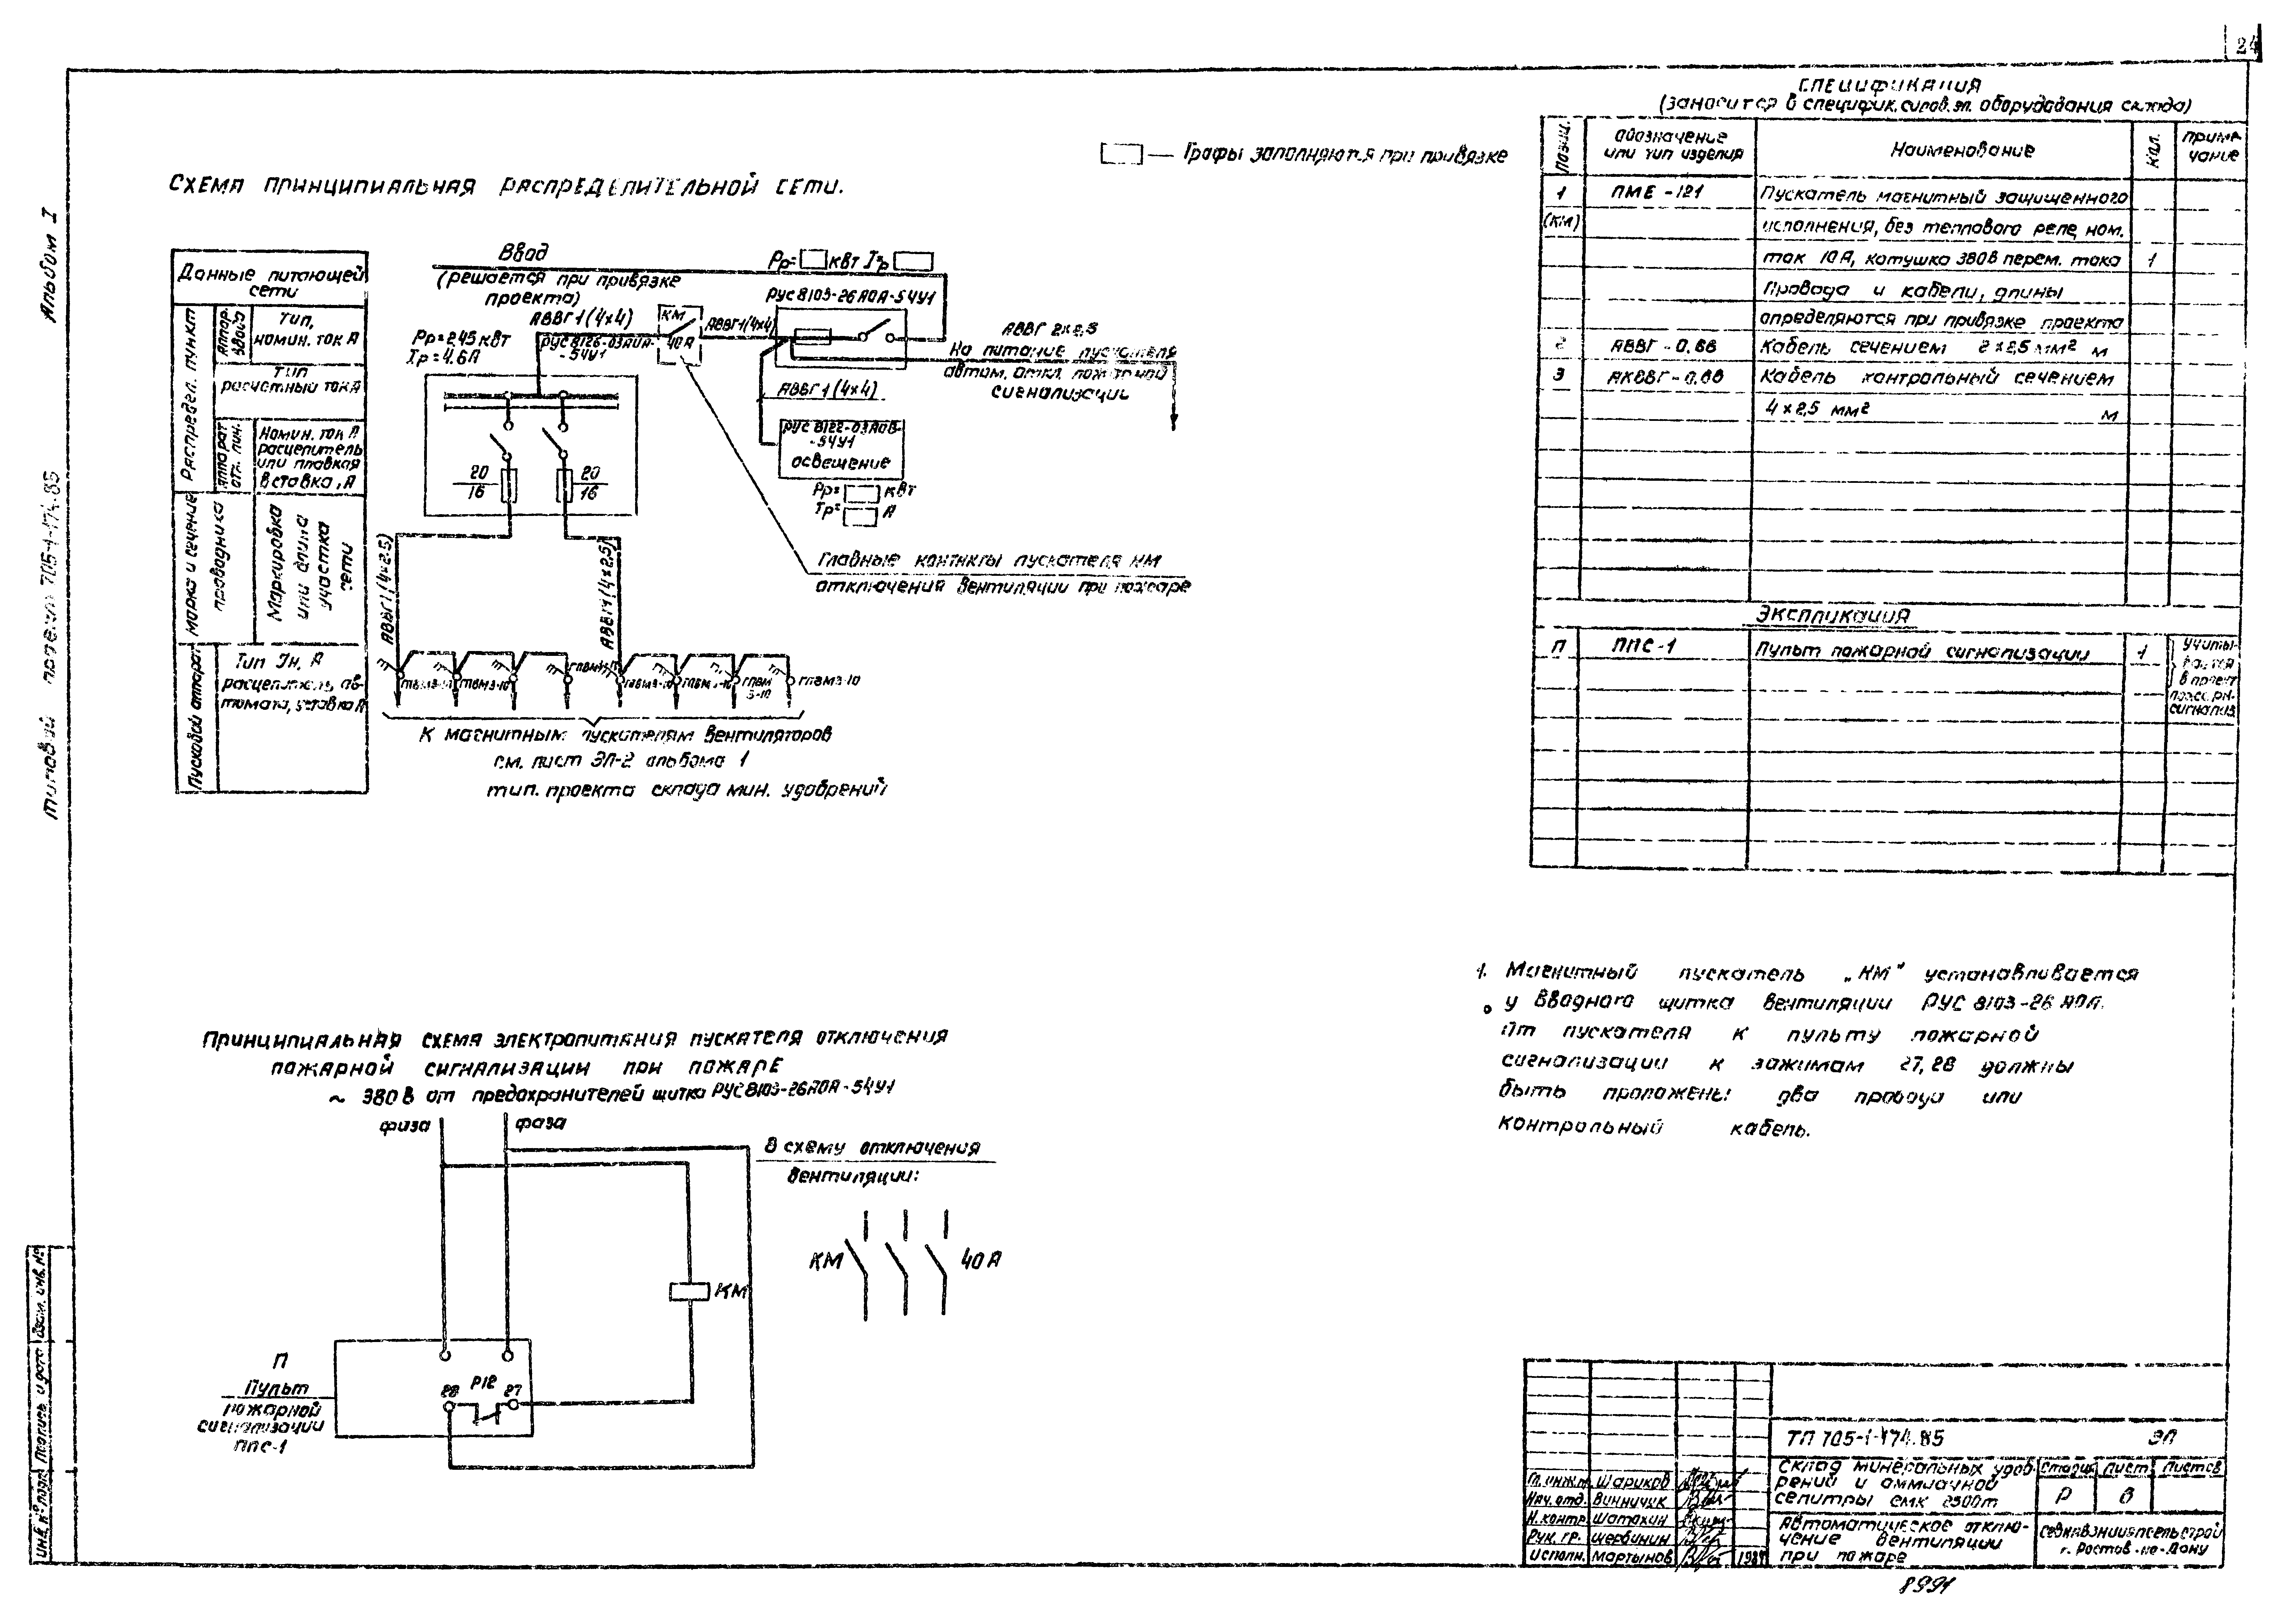 24
Альбом I
Типовой проект 705-1-174.85
СХЕМА ПРИНЦИПИАЛЬНАЯ РАСПРЕДЕЛИТЕЛЬНОЙ СЕТИ.
— Графы заполняются при привязке
Данные питающей
сети
Распредел. пункт
Аппар.
ввода
Тип,
номин. ток А
Тип
расчетный ток А
Аппарат
отх. лин.
Номин. ток А
расцепитель
или плавкая
вставка, А
Марка и сечение
проводника
Маркировка
или длина
участка
сети
Пусковой аппарат
Тип Iн, А
расцепитель ав-
томата, уставка А
Ввод
(решается при привязке
проекта)
Рр= квт Iр
РУС8103-26А0А-54У1
АВВГ1(4х4)
КМ
40А
АВВГ1(4х4)
Рр=2,45 квт
Iр=4.6А
РУС8126-03А0А-
-54У1
АВВГ 2х2,5
На питание пускателя
автом. откл. пожарной
сигнализации
АВВГ1(4х4)
РУС8122-03А0В-
-54У1
освещение
Рр= квт
Iр= А
20
16
20
16
АВВГ1(4х2.5)
АВВГ1(4х2,5)
Главные контакты пускателя КМ
отключения вентиляции при пожаре
ГПВМ3-10
К магнитным пускателям вентиляторов
см. лист ЭЛ-2 альбома 1
тип. проекта склада мин. удобрений
СПЕЦИФИКАЦИЯ
(заносится в специфик. силов. эл. оборудования склада)
Позиц.
Обозначение
или тип изделия
Наименование
Кол.
Приме-
чание
1
(КМ)
ПМЕ-121
Пускатель магнитный защищенного
исполнения, без теплового реле, ном.
ток 10А, катушка 380в перем. тока
1
Провода и кабели, длины
определяются при привязке проекта
2
АВВГ-0.66
Кабель сечением 2х2,5 мм² м
3
АКВВГ-0.66
Кабель контрольный сечением
4х2,5 мм² м
ЭКСПЛИКАЦИЯ
П
ППС-1
Пульт пожарной сигнализации
1
Учиты-
вается
в проект
пожарн.
сигнализ.
1. Магнитный пускатель „КМ" устанавливается
у вводного щитка вентиляции РУС 8103-26А0А.
От пускателя к пульту пожарной
сигнализации к зажимам 27, 28 должны
быть проложены два провода или
контрольный кабель.
ПРИНЦИПИАЛЬНАЯ СХЕМА ЭЛЕКТРОПИТАНИЯ ПУСКАТЕЛЯ ОТКЛЮЧЕНИЯ
ПОЖАРНОЙ СИГНАЛИЗАЦИИ ПРИ ПОЖАРЕ
~ 380В от предохранителей щитка РУС8103-26А0А-54У1
фаза
фаза
В схему отключения
вентиляции:
КМ
40А
КМ
П
Пульт
пожарной
сигнализации
ППС-1
28
Р12
27
Инв. № подл.
Подпись и дата
Взам. инв. №
ТП 705-1-174.85 ЭЛ
Склад минеральных удоб-
рений и аммиачной
селитры емк 2500т
Стадия
Лист
Листов
Р
8
Автоматическое отклю-
чение вентиляции
при пожаре
г. Ростов-на-Дону
Гл. инж.п. Шариков
Нач. отд. Винничук
Н. контр. Шатохин
Рук. гр. Щербинин
Исполн. Мартынов
1984
8991